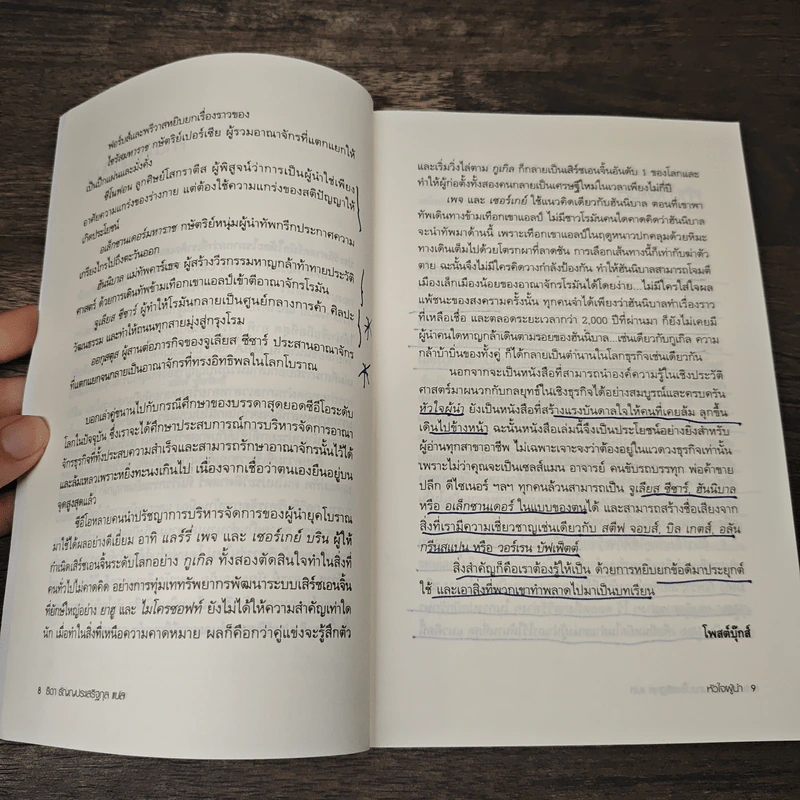 ฟอร์บส์และพรีวาสหยิบยกเรื่องราวของ
ไซรัสมหาราช กษัตริย์เปอร์เซีย ผู้รวมอาณาจักรที่แตกแยกให้
เป็นปึกแผ่นและมั่งคั่ง
ซีโนฟอน ลูกศิษย์โสกราตีส ผู้พิสูจน์ว่าการเป็นผู้นำใช่เพียง
อาศัยความแกร่งของร่างกาย แต่ต้องใช้ความแกร่งของสติปัญญาให้
เกิดประโยชน์
อเล็กซานเดอร์มหาราช กษัตริย์หนุ่มผู้นำทัพกรีกประกาศความ
เกรียงไกรไปถึงตะวันออก
ฮันนิบาล แม่ทัพคาร์เธจ ผู้สร้างวีรกรรมหาญกล้าท้าทายประวัติ
ศาสตร์ ด้วยการเดินทัพข้ามเทือกเขาแอลป์เข้าตีอาณาจักรโรมัน
จูเลียส ซีซาร์ ผู้ทำให้โรมันกลายเป็นศูนย์กลางการค้า ศิลปะ
วัฒนธรรม และทำให้ถนนทุกสายมุ่งสู่กรุงโรม
ออกุสตุส ผู้สานต่อภารกิจของจูเลียส ซีซาร์ ประสานอาณาจักร
ที่แตกแยกจนกลายเป็นอาณาจักรที่ทรงอิทธิพลในโลกโบราณ
บอกเล่าคู่ขนานไปกับกรณีศึกษาของบรรดาสุดยอดซีอีโอระดับ
โลกในปัจจุบัน ซึ่งเราจะได้ศึกษาประสบการณ์การบริหารจัดการอาณา
จักรธุรกิจที่ทั้งประสบความสำเร็จและสามารถรักษาอาณาจักรนั้นไว้ได้
และล้มเหลวเพราะหยิ่งทะนงเกินไป เนื่องจากเชื่อว่าตนเองยืนอยู่บน
จุดสูงสุดแล้ว
ซีอีโอหลายคนนำปรัชญาการบริหารจัดการของผู้นำยุคโบราณ
มาใช้ได้ผลอย่างดีเยี่ยม อาทิ แลร์รี่ เพจ และ เซอร์เกย์ บริน ผู้ให้
กำเนิดเสิร์ชเอนจิ้นระดับโลกอย่าง กูเกิล ทั้งสองตัดสินใจทำในสิ่งที่
คนทั่วไปไม่คาดคิด อย่างการทุ่มเททรัพยากรพัฒนาระบบเสิร์ชเอนจิ้น
ที่ยักษ์ใหญ่อย่าง ยาฮู และ ไมโครซอฟท์ ยังไม่ได้ให้ความสำคัญเท่าใด
นัก เมื่อทำในสิ่งที่เหนือความคาดหมาย ผลก็คือกว่าคู่แข่งจะรู้สึกตัว
8 ธิดา ธัญญประเสริฐกุล แปล
และเริ่มวิ่งไล่ตาม กูเกิล ก็กลายเป็นเสิร์ชเอนจิ้นอันดับ 1 ของโลกและ
ทำให้ผู้ก่อตั้งทั้งสองคนกลายเป็นเศรษฐีใหม่ในเวลาเพียงไม่กี่ปี
เพจ และ เซอร์เกย์ ใช้แนวคิดเดียวกับฮันนิบาล ตอนที่เขาพา
ทัพเดินทางข้ามเทือกเขาแอลป์ ไม่มีชาวโรมันคนใดคาดคิดว่าฮันนิบาล
จะนำทัพมาด้านนี้ เพราะเทือกเขาแอลป์ในฤดูหนาวปกคลุมด้วยหิมะ
ทางเดินเต็มไปด้วยโตรกผาที่ลาดชัน การเลือกเส้นทางนี้ก็เท่ากับฆ่าตัว
ตาย ฉะนั้นจึงไม่มีใครคิดวางกำลังป้องกัน ทำให้ฮันนิบาลสามารถโจมตี
เมืองเล็กเมืองน้อยของอาณาจักรโรมันได้โดยง่าย...ไม่มีใครใส่ใจผล
แพ้ชนะของสงครามครั้งนั้น ทุกคนจำได้เพียงว่าฮันนิบาลทำเรื่องราว
ที่เหลือเชื่อ และตลอดระยะเวลากว่า 2,000 ปีที่ผ่านมา ก็ยังไม่เคยมี
ผู้นำคนใดหาญกล้าเดินตามรอยของฮันนิบาล...เช่นเดียวกับกูเกิล ความ
กล้าบ้าบิ่นของทั้งคู่ ก็ได้กลายเป็นตำนานในโลกธุรกิจเช่นเดียวกัน
นอกจากจะเป็นหนังสือที่สามารถนำองค์ความรู้ในเชิงประวัติ
ศาสตร์มาผนวกกับกลยุทธ์ในเชิงธุรกิจได้อย่างสมบูรณ์และครบครัน
หัวใจผู้นำ ยังเป็นหนังสือที่สร้างแรงบันดาลใจให้คนที่เคยล้ม ลุกขึ้น
เดินไปข้างหน้า ฉะนั้นหนังสือเล่มนี้จึงเป็นประโยชน์อย่างยิ่งสำหรับ
ผู้อ่านทุกสาขาอาชีพ ไม่เฉพาะเจาะจงว่าต้องอยู่ในแวดวงธุรกิจเท่านั้น
เพราะไม่ว่าคุณจะเป็นเซลส์แมน อาจารย์ คนขับรถบรรทุก พ่อค้าขาย
ปลีก ดีไซเนอร์ ฯลฯ ทุกคนล้วนสามารถเป็น จูเลียส ซีซาร์, ฮันนิบาล
หรือ อเล็กซานเดอร์ ในแบบของตนได้ และสามารถสร้างชื่อเสียงจาก
สิ่งที่เรามีความเชี่ยวชาญเช่นเดียวกับ สตีฟ จอบส์, บิล เกตส์, อลัน
กรีนสแปน หรือ วอร์เรน บัฟเฟ็ตต์
สิ่งสำคัญก็คือเราต้องรู้ให้เป็น ด้วยการหยิบยกข้อดีมาประยุกต์
ใช้ และเอาสิ่งที่พวกเขาทำพลาดไปมาเป็นบทเรียน
โพสต์บุ๊กส์
หัวใจผู้นำ 9